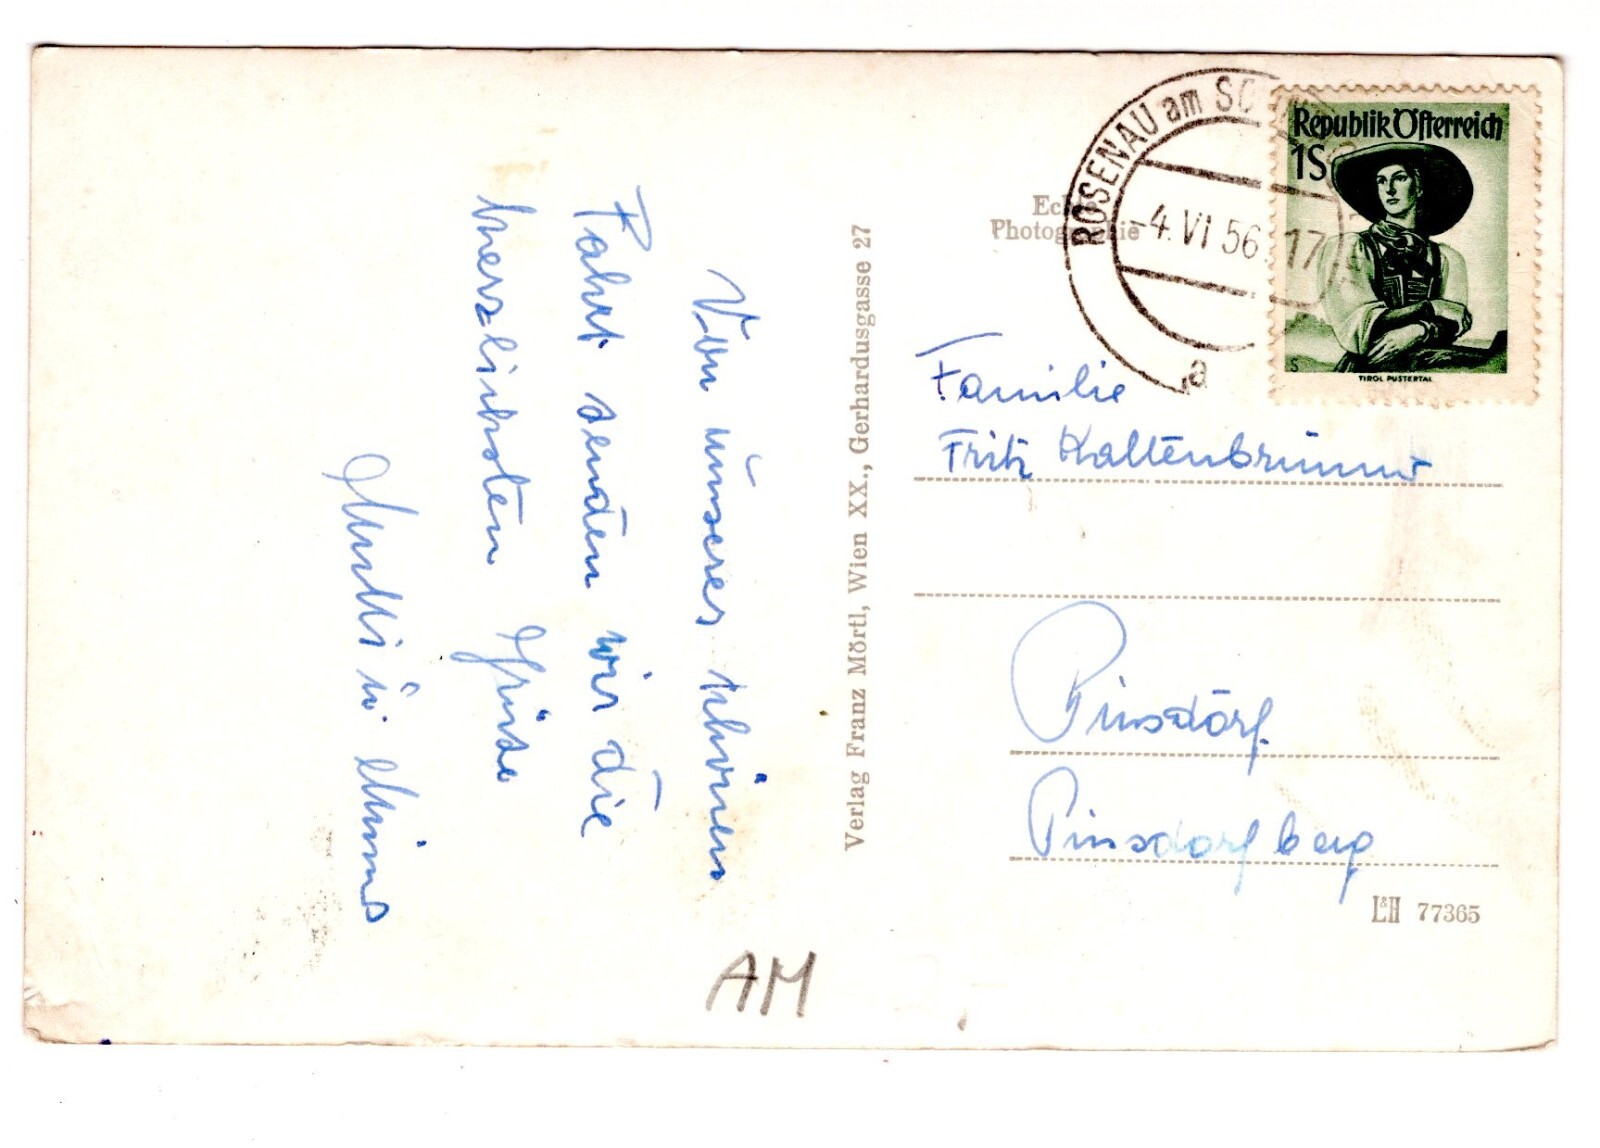 Von unserer schönen
Fahrt senden wir die
herzlichsten Grüße
Mutti u.
Verlag Franz Mörtl, Wien XX., Gerhardusgasse 27
Echte
Photographie
ROSENAU am
-4. VI 56 17
a
Republik Österreich
1S
TIROL PUSTERTAL
Familie
Fritz Kaltenbrunner
Pinsdorf
Pinsdorfberg
L&H 77365
AM